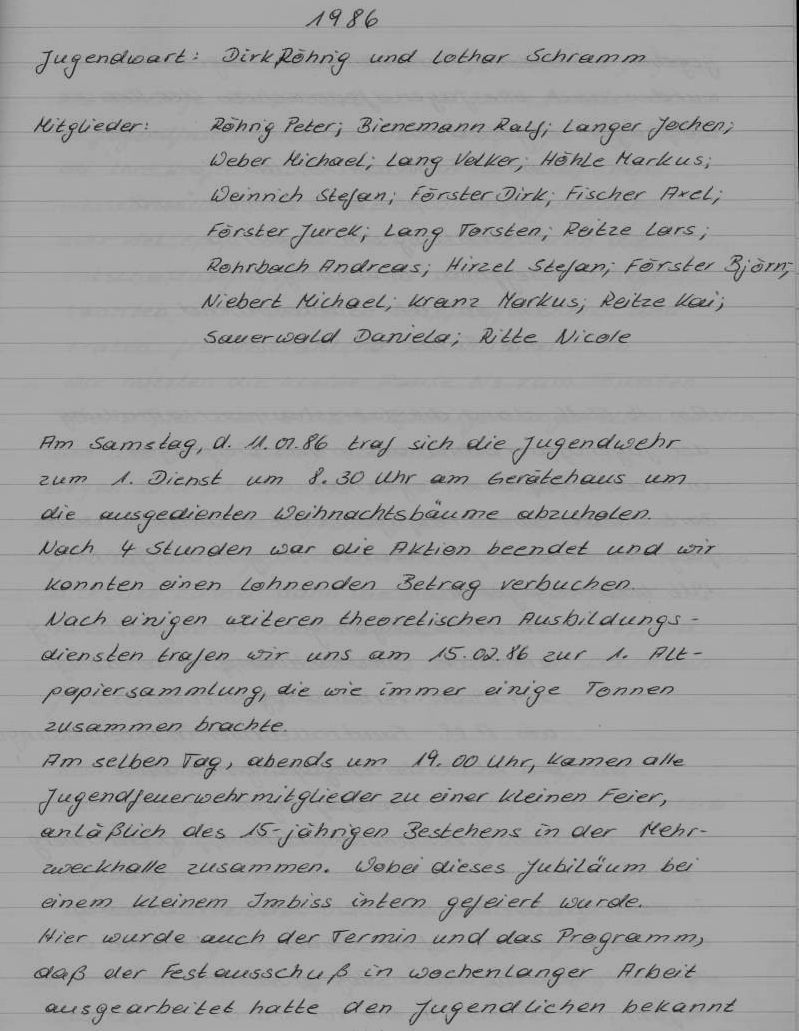 1986
Jugendwart: Dirk Röhrig und Lothar Schramm
Mitglieder: Röhrig Peter; Bienemann Ralf; Langer Jochen;
Weber Michael; Lang Volker; Höhle Markus;
Weinrich Stefan; Förster Dirk; Fischer Axel;
Förster Jurek; Lang Torsten; Reitze Lars;
Rohrbach Andreas; Hirzel Stefan; Förster Björn;
Niebert Michael; Kranz Markus; Reitze Kai;
Sauerwald Daniela; Ritte Nicole
Am Samstag, d. 11.01.86 traf sich die Jugendwehr
zum 1. Dienst um 8.30 Uhr am Gerätehaus um
die ausgedienten Weihnachtsbäume abzuholen.
Nach 4 Stunden war die Aktion beendet und wir
konnten einen lohnenden Betrag verbuchen.
Nach einigen weiteren theoretischen Ausbildungs-
diensten trafen wir uns am 15.02.86 zur 1. Alt-
papiersammlung, die wie immer einige Tonnen
zusammen brachte.
Am selben Tag, abends um 19.00 Uhr, kamen alle
Jugendfeuerwehrmitglieder zu einer kleinen Feier,
anläßlich des 15-jährigen Bestehens in der Mehr-
zweckhalle zusammen. Wobei dieses Jubiläum bei
einem kleinem Imbiss intern gefeiert wurde.
Hier wurde auch der Termin und das Programm,
daß der Festausschuß in wochenlanger Arbeit
ausgearbeitet hatte den Jugendlichen bekannt